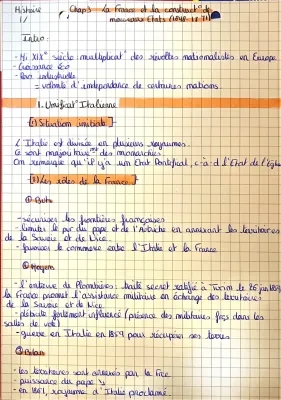 Histoire
Chap3 La France et la construct° de
1/
nouveaux Etats (1848-1871)
Intro :
- Mi XIX° siècle multiplicat° des révoltes nationalistes en Europe
- Croissance Eco
- Rev industrielle
= volonté d'indépendance de certaines nations
I. Unificat° Italienne
1) Situation initiale
L'Italie est divisée en plusieurs royaumes.
Ce sont majoritairemt des monarchies.
On remarque qu'il y a un Etat Pontifical, c-à-d l'Etat de l'Eglise
2) Les rôles de la France
① Buts
- sécuriser les frontières françaises
- limiter le pvr du pape et de l'Autriche en annexant les territoires
de la Savoie et de Nice.
- favoriser le commerce entre l'Italie et la France
② Moyens
- l'entrevue de Plombières : traité secret ratifié à Turin le 26 janv
la France promet l'assistance militaire en échange des territoires
de la Savoie et de Nice.
- plébiscite fortement influencé (présence des militaires frçs dans les
salles de vote)
- guerre en Italie en 1859 pour récupérer ses terres
③ Bilan
- les territoires sont annexés par la Frce
- puissance du pape ↘
- en 1861, royaume d'Italie proclamé